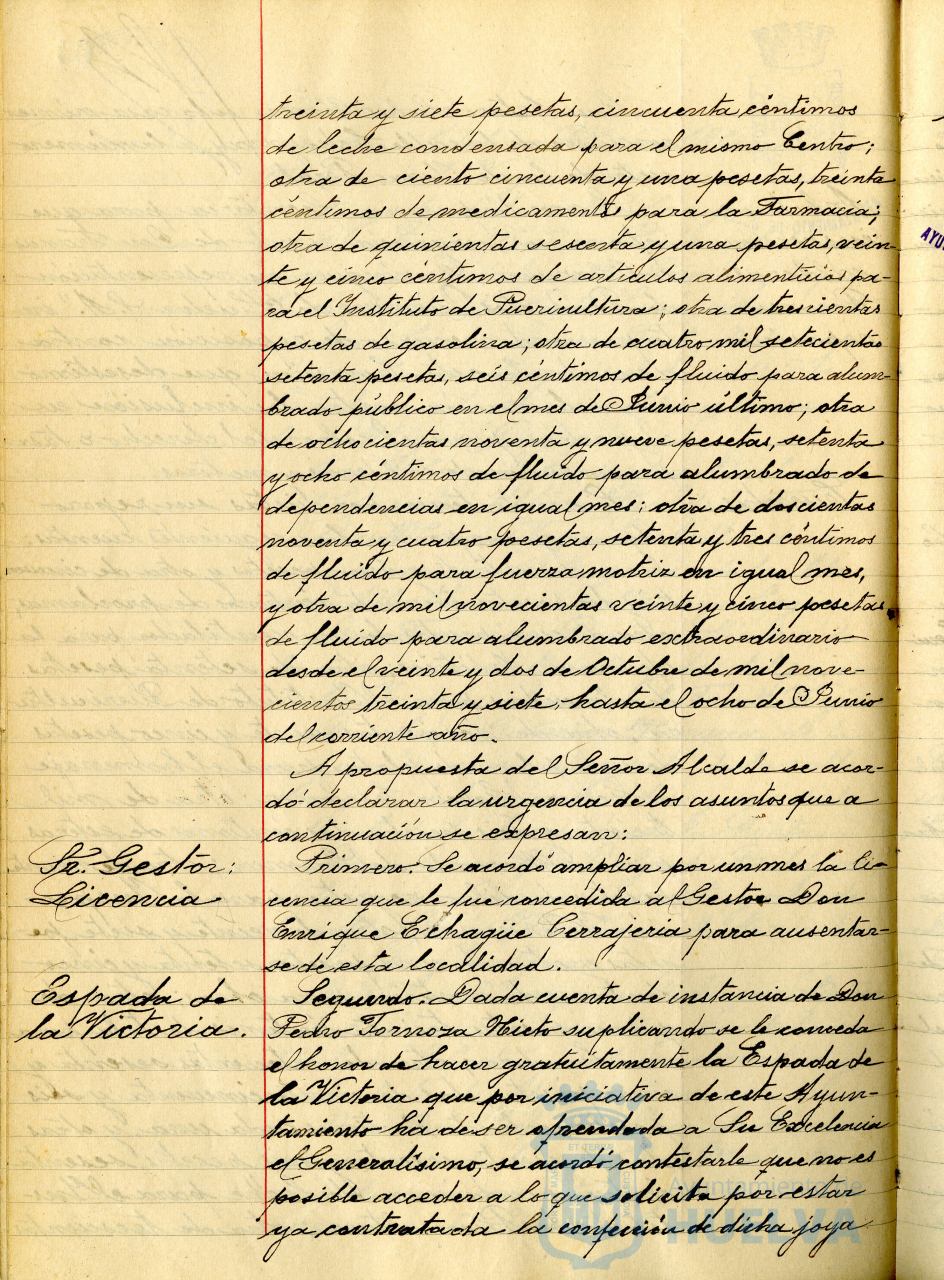 treinta y siete pesetas, cincuenta céntimos
de leche condensada para el mismo Centro;
otra de ciento cincuenta y una pesetas, treinta
céntimos de medicamentos para la Farmacia;
otra de quinientas sesenta y una pesetas, vein-
te y cinco céntimos de artículos alimenticios pa-
ra el Instituto de Puericultura; otra de trescientas
pesetas de gasolina; otra de cuatro mil setecientas
setenta pesetas, seis céntimos de fluido para alum-
brado público en el mes de Junio último; otra
de ochocientas noventa y nueve pesetas, setenta
y ocho céntimos de fluido para alumbrado de
dependencias en igual mes; otra de doscientas
noventa y cuatro pesetas, setenta y tres céntimos
de fluido para fuerza motriz en igual mes,
y otra de mil novecientas veinte y cinco pesetas
de fluido para alumbrado extraordinario
desde el veinte y dos de Octubre de mil nove-
cientos treinta y siete, hasta el ocho de Junio
del corriente año.
A propuesta del Señor Alcalde se acor-
dó declarar la urgencia de los asuntos que a
continuación se expresan:
Sr. Gestor:
Licencia
Primero. Se acordó ampliar por un mes la li-
cencia que le fué concedida al Gestor Don
Enrique Echagüe Cerrajeria para ausentar-
se de esta localidad.
Espada de
la Victoria.
Segundo. Dada cuenta de instancia de Don
Pedro Tornoza Nieto suplicando se le conceda
el honor de hacer gratuitamente la Espada de
la Victoria que por iniciativa de este Ayun-
tamiento ha de ser ofrendada a Su Excelencia
el Generalísimo, se acordó contestarle que no es
posible acceder a lo que solicita por estar
ya contratada la confección de dicha joya
Ayuntamiento de
HUELVA
AYU